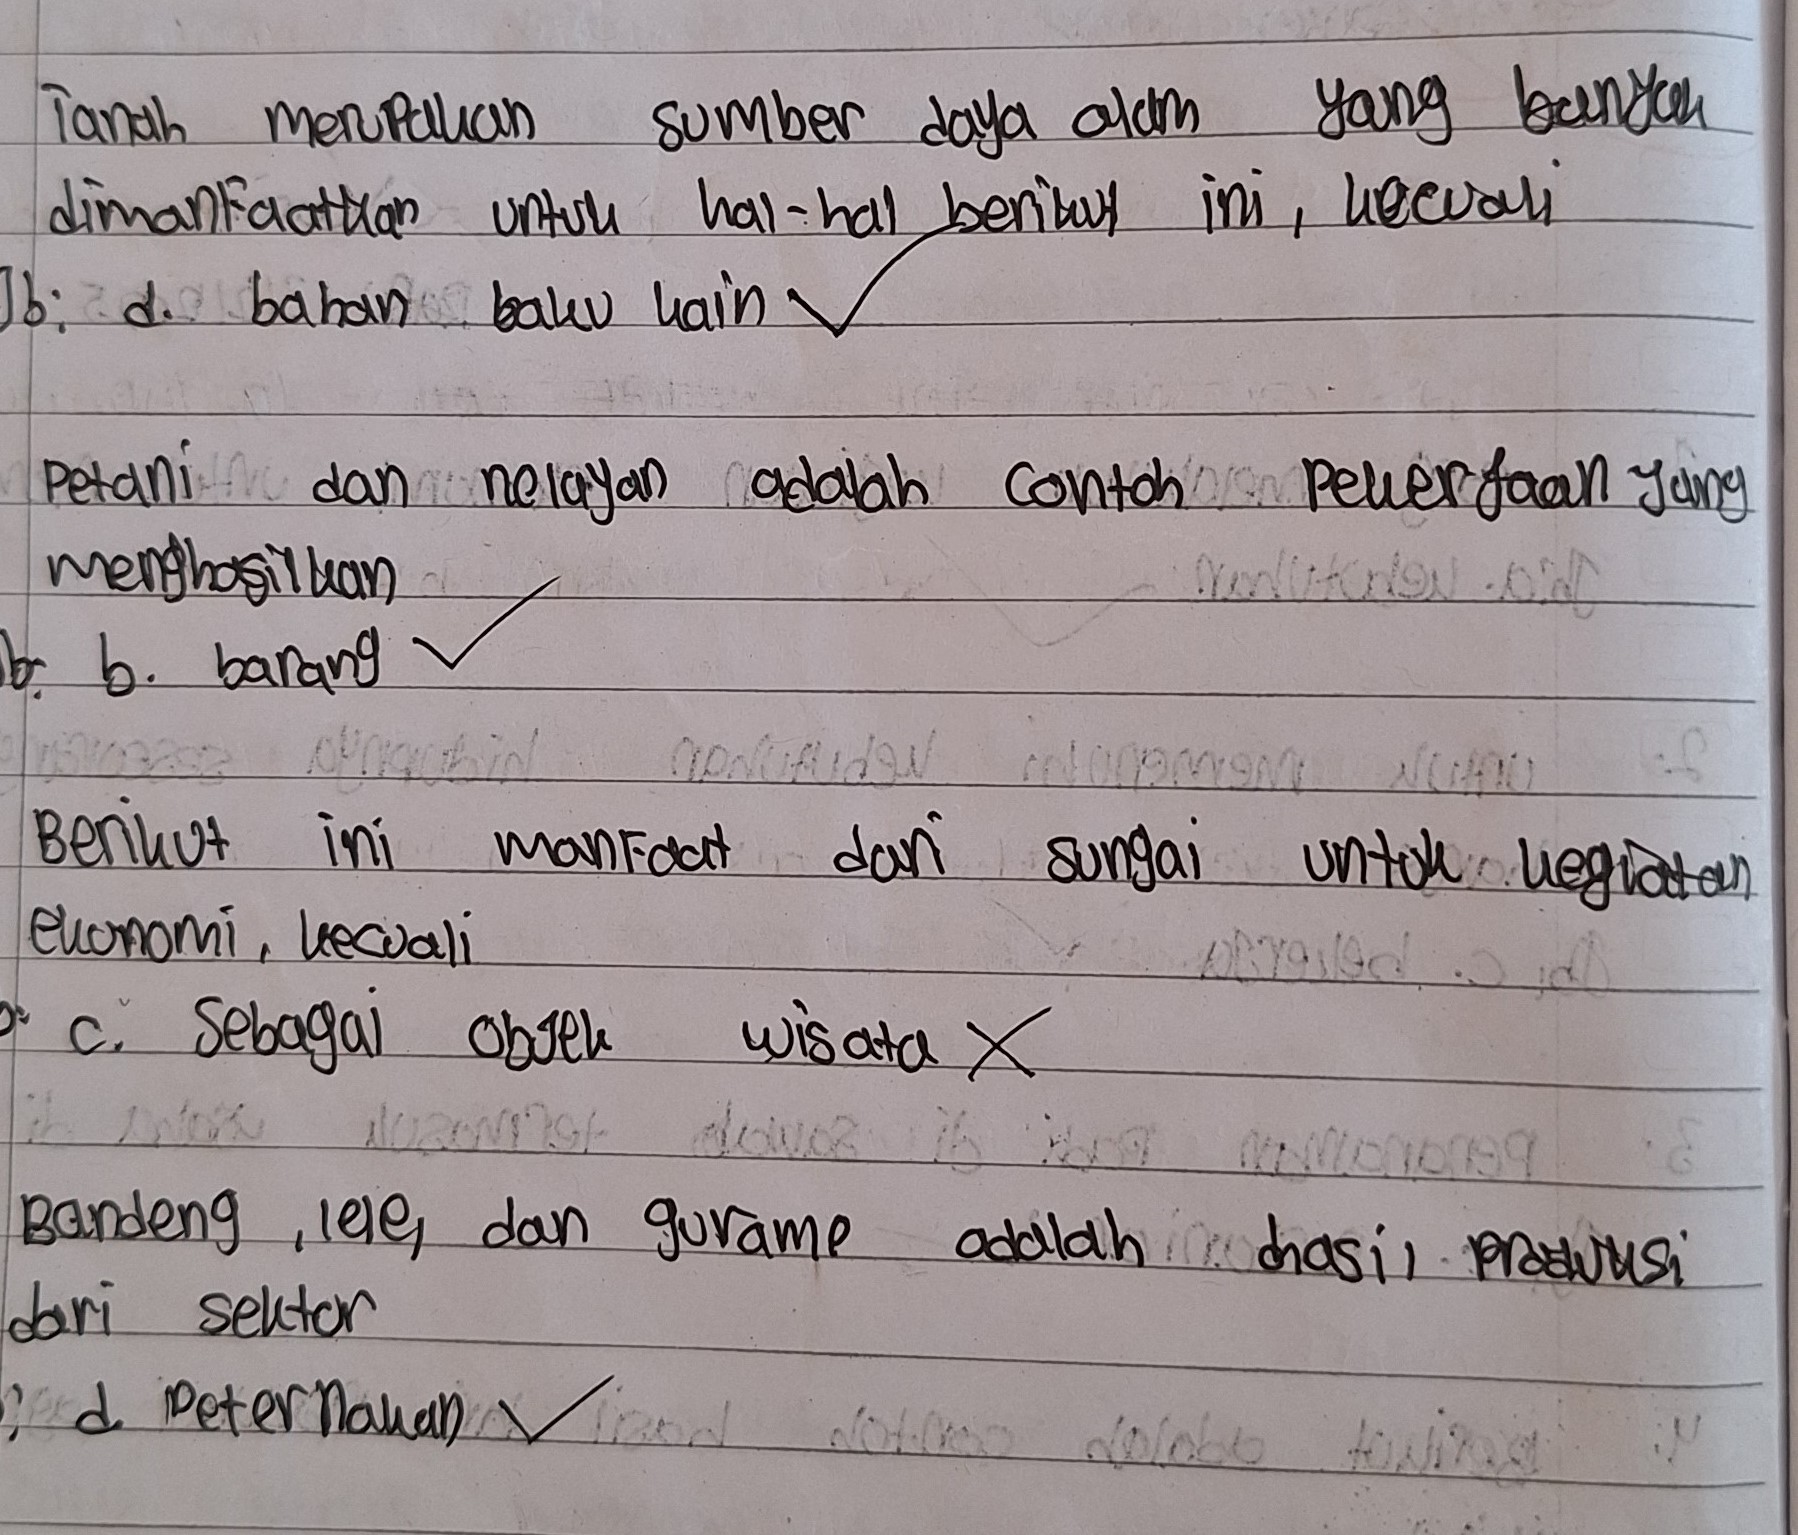 Tanah merupakan sumber daya alam yang banyak
dimanfaatkan untuk hal-hal berikut ini, kecuali
Jb: d. bahan baku kain ✓
Petani dan nelayan adalah contoh pekerjaan yang
menghasilkan
b. b. barang ✓
Berikut ini manfaat dari sungai untuk kegiatan
ekonomi, kecuali
c. Sebagai objek wisata X
Bandeng, lele, dan gurame adalah hasil produksi
dari sektor
d Peternakan ✓